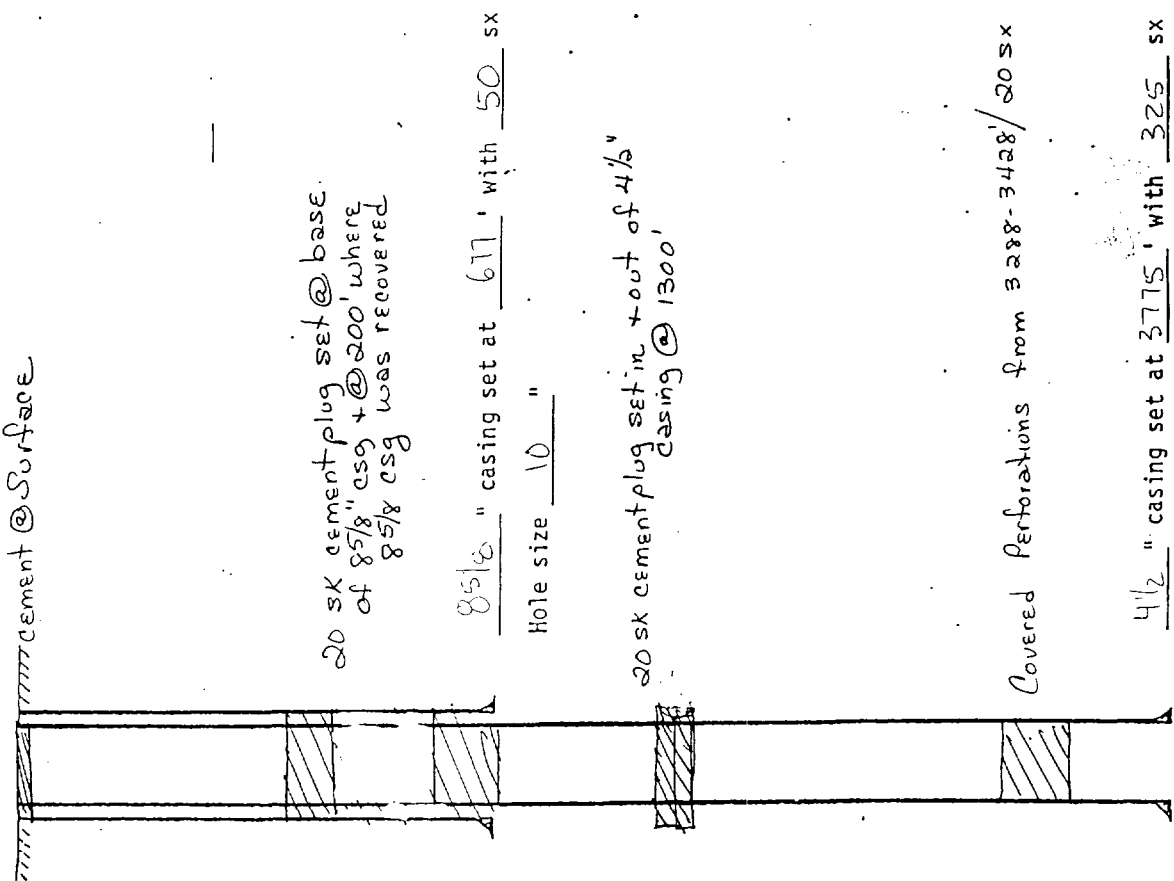 cement @ Surface
20 sk cement plug set @ base
of 8 5/8" csg + @ 200' where
8 5/8 csg was recovered
8 5/8 " casing set at 677 ' with 50 sx
Hole size 10 "
20 sk cement plug set in + out of 4 1/2"
casing @ 1300'
Covered Perforations from 3288-3428'/20 sx
4 1/2 " casing set at 3775 ' with 325 sx